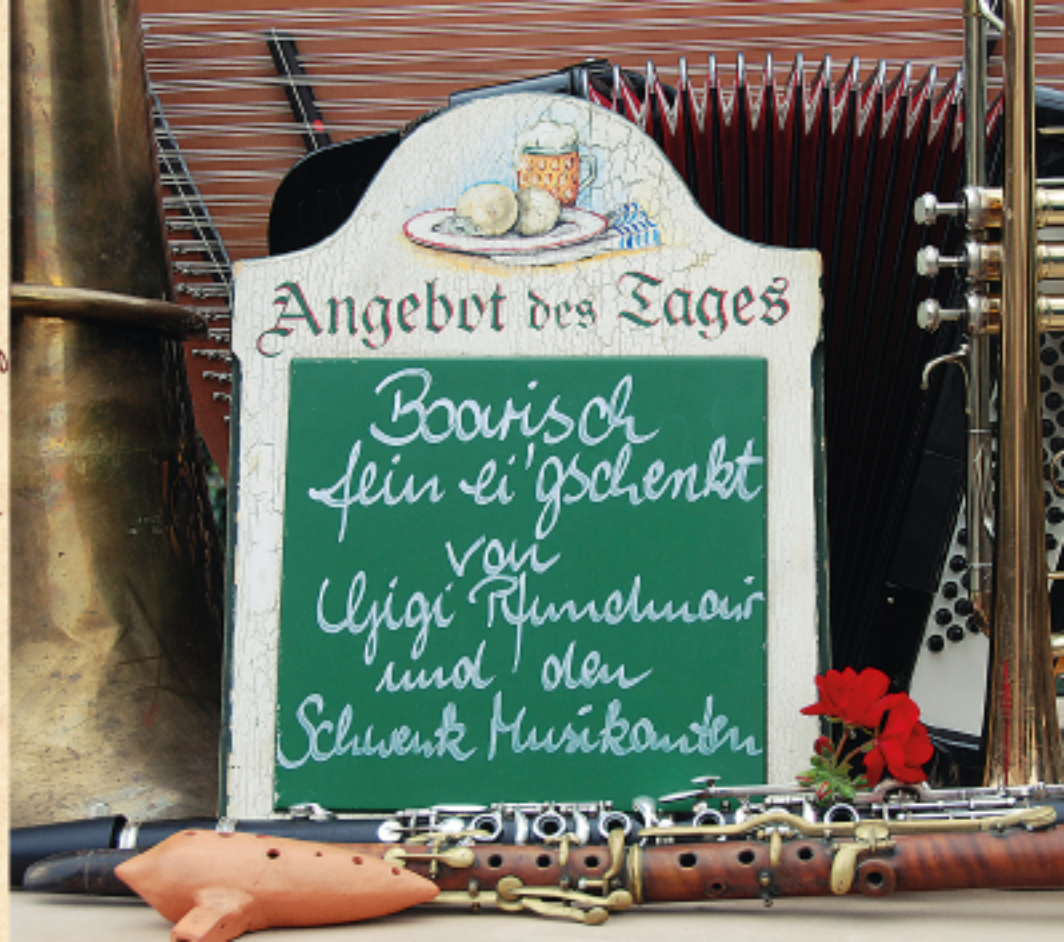 Angebot des Tages
Boarisch
fein ei'gschenkt
von
Gigi Pfundmair
und den
Schwenk Musikanten